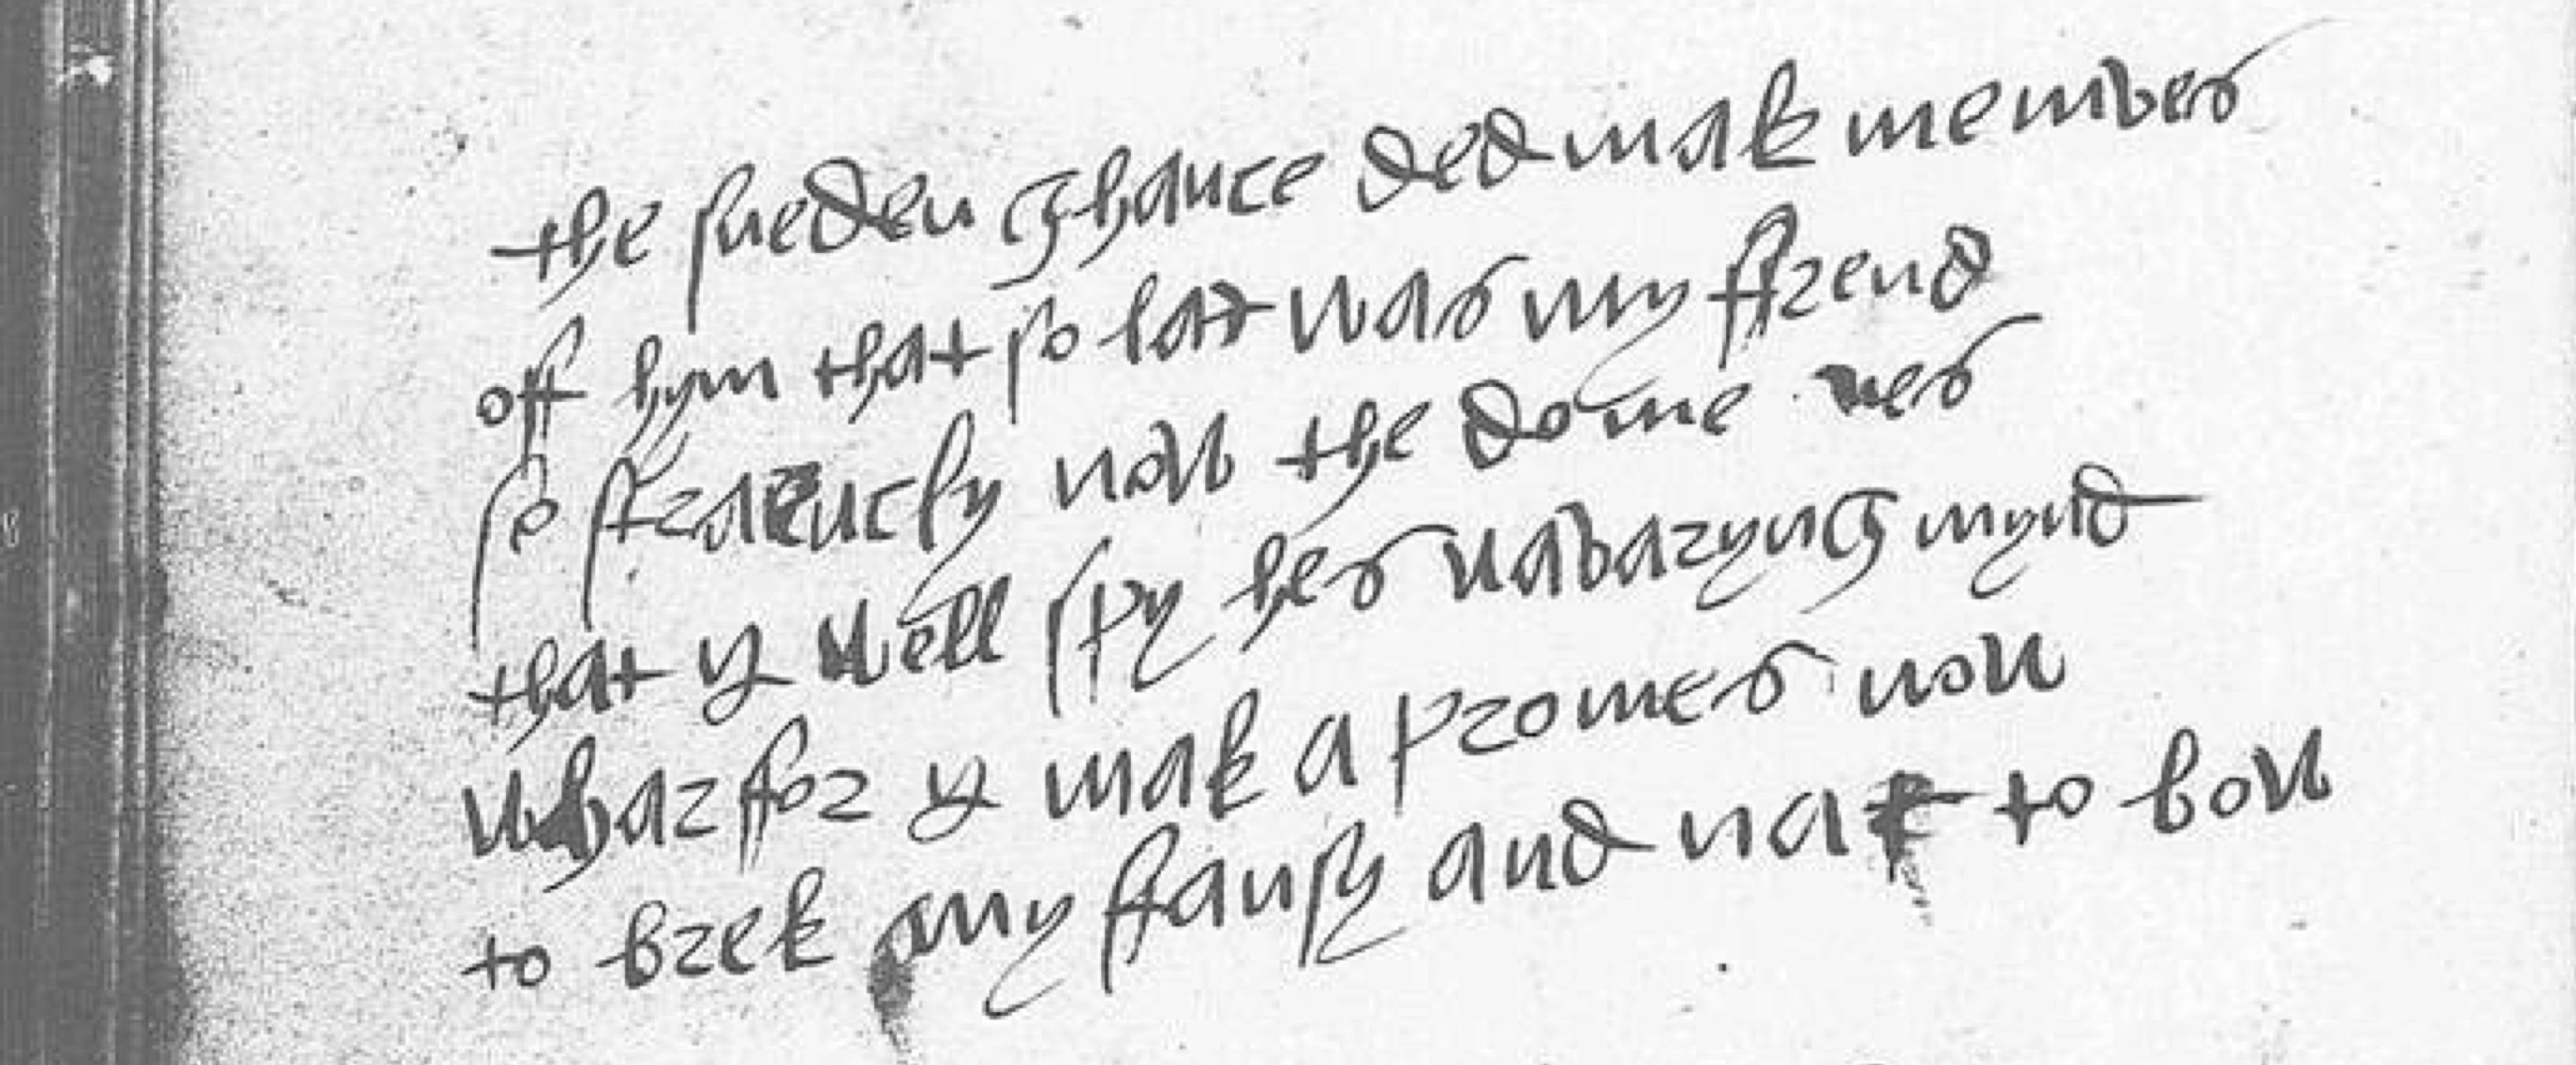 the sueden ghance ded mak me mves
off hym that so lat was my ffrend
so straenely now the do me ues
that y well spy hes wavaryng mynd
wharffor y mak a promes now
to brek my ffansy and nat to bow